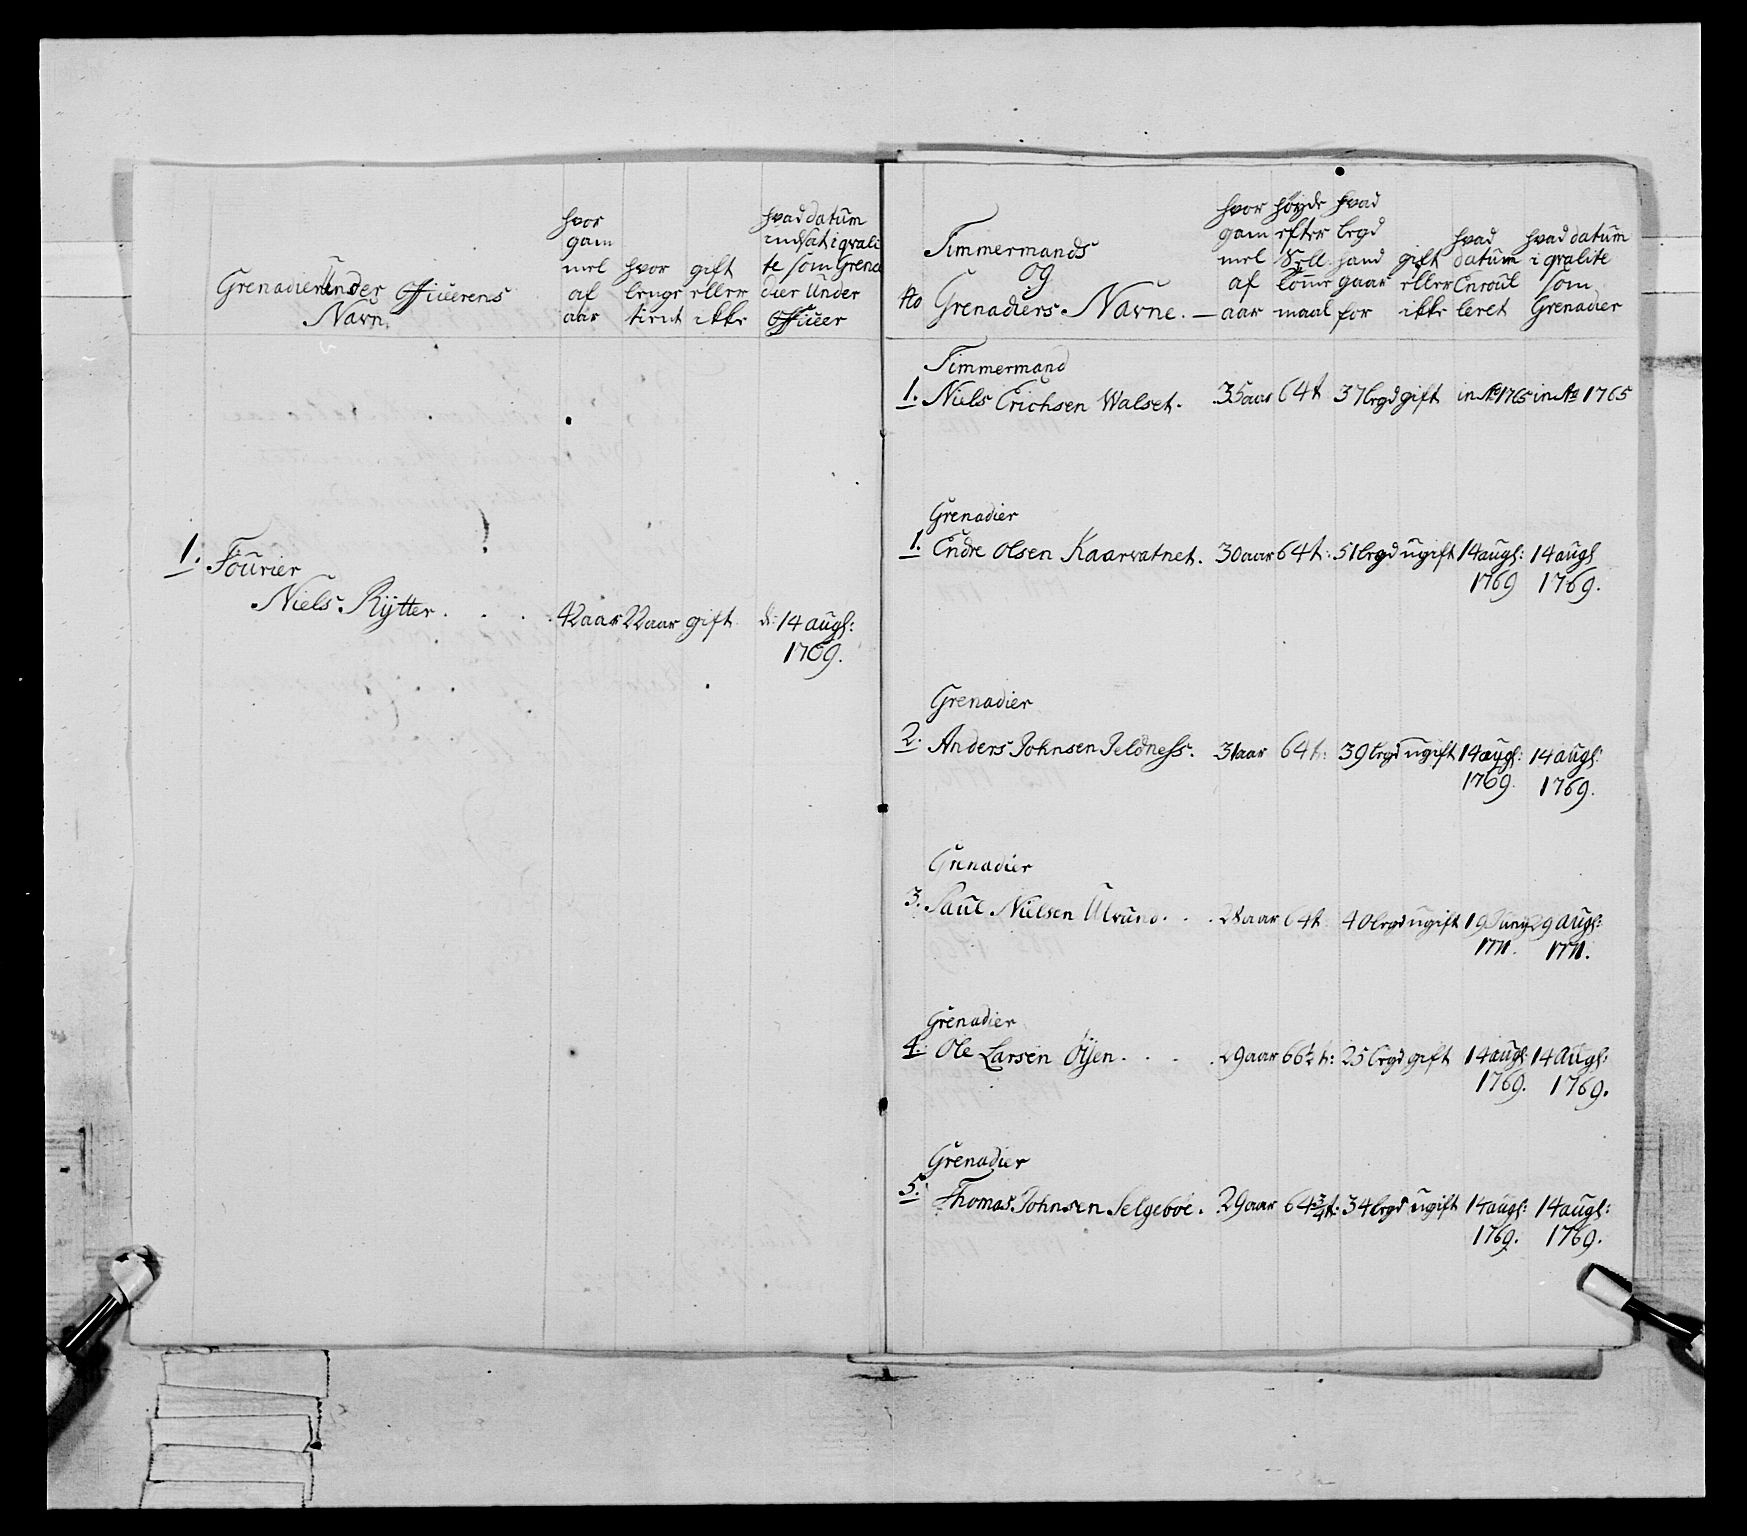 Grenadier Under Officerens
Navn.
hvor
gam
mel
af
aar
hvor
lenge
tient
gift
eller
ikke
hvad datum
indsat i qvali
te som Grena
dier Under
Officer
1. Fourier
Niels Rytter. . . . 42 aar 22 aar gift d: 14 augl:
1769.
No
Timmermands
og
Grenadiers Navne. —
hvor
gam
mel
af
aar
høyde
efter
Sell
lomr
maal
hvad
legd
hand
gaar
for
gift
eller
ikke
hvad
datum
Enroul
leret
hvad datum
i qvalite
som
Grenadier
Timmermand
1. Niels Erichsen Walset. 35 aar 64 t 37 legd gift in Ao 1765 in Ao 1765
Grenadier
1. Endre Olsen Kaarvatnet. 30 aar 64 t: 51 legd ugift 14 augl: 14 augl
1769 1769.
Grenadier
2. Anders Johnsen Jeldness. 31 aar 64 t: 39 legd ugift 14 augl: 14 augl:
1769. 1769.
Grenadier
3. Paul Nielsen Ulvund. . . 28 aar 64 t 40 legd ugift 19 Juny 29 augl:
1771. 1771.
Grenadier
4. Ole Larsen Øyen. . . . 29 aar 66½ t: 25 legd gift 14 augl 14 augl:
1769. 1769.
Grenadier
5. Thomas Johnsen Selgeboe. 29 aar 64¾ t: 34 legd ugift 14 augl: 14 augl:
1769. 1769.